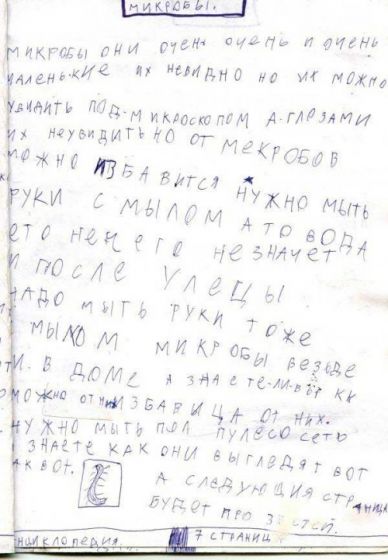 МИКРОБЫ.
МИКРОБЫ ОНИ ОЧЕНЬ ОЧЕНЬ И ОЧЕНЬ
МАЛЕНЬКИЕ ИХ НЕВИДНО НО ИХ МОЖНО
УВИДИТЬ ПОД-МИКРОСКОПОМ А-ГЛАЗАМИ
ИХ НЕУВИДИТЬ НО ОТ МЕКРОБОВ
МОЖНО ИЗБАВИТСЯ НУЖНО МЫТЬ
РУКИ С МЫЛОМ А ТО ВОДА
ЕТО НЕЧЕГО НЕЗНАЧЕТ
И ПОСЛЕ УЛЕЦЫ
НАДО МЫТЬ РУКИ ТОЖЕ
МЫЛОМ МИКРОБЫ ВЕЗЬДЕ
И. В ДОМЕ А ЗНАЕТЕ-ЛИ-ВЫ КК
МОЖНО ОТ НИ ИЗБАВИЦА ОТ НИХ.
НУЖНО МЫТЬ ПОЛ ПУЛЕСОСЕТЬ
ЗНАЕТЕ КАК ОНИ ВЫГЛЕДЯТ ВОТ
АК ВОТ. А СЛЕДУЮЩИЯ СТРАНИЦА
БУДЕТ ПРО
НЦИКЛОПЕДИЯ. 7 СТРАНИЦ